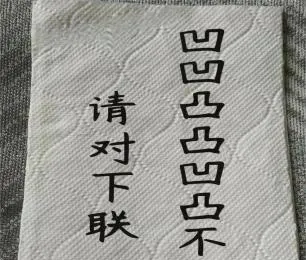 凹凹凸凸凹凸不
请对下联